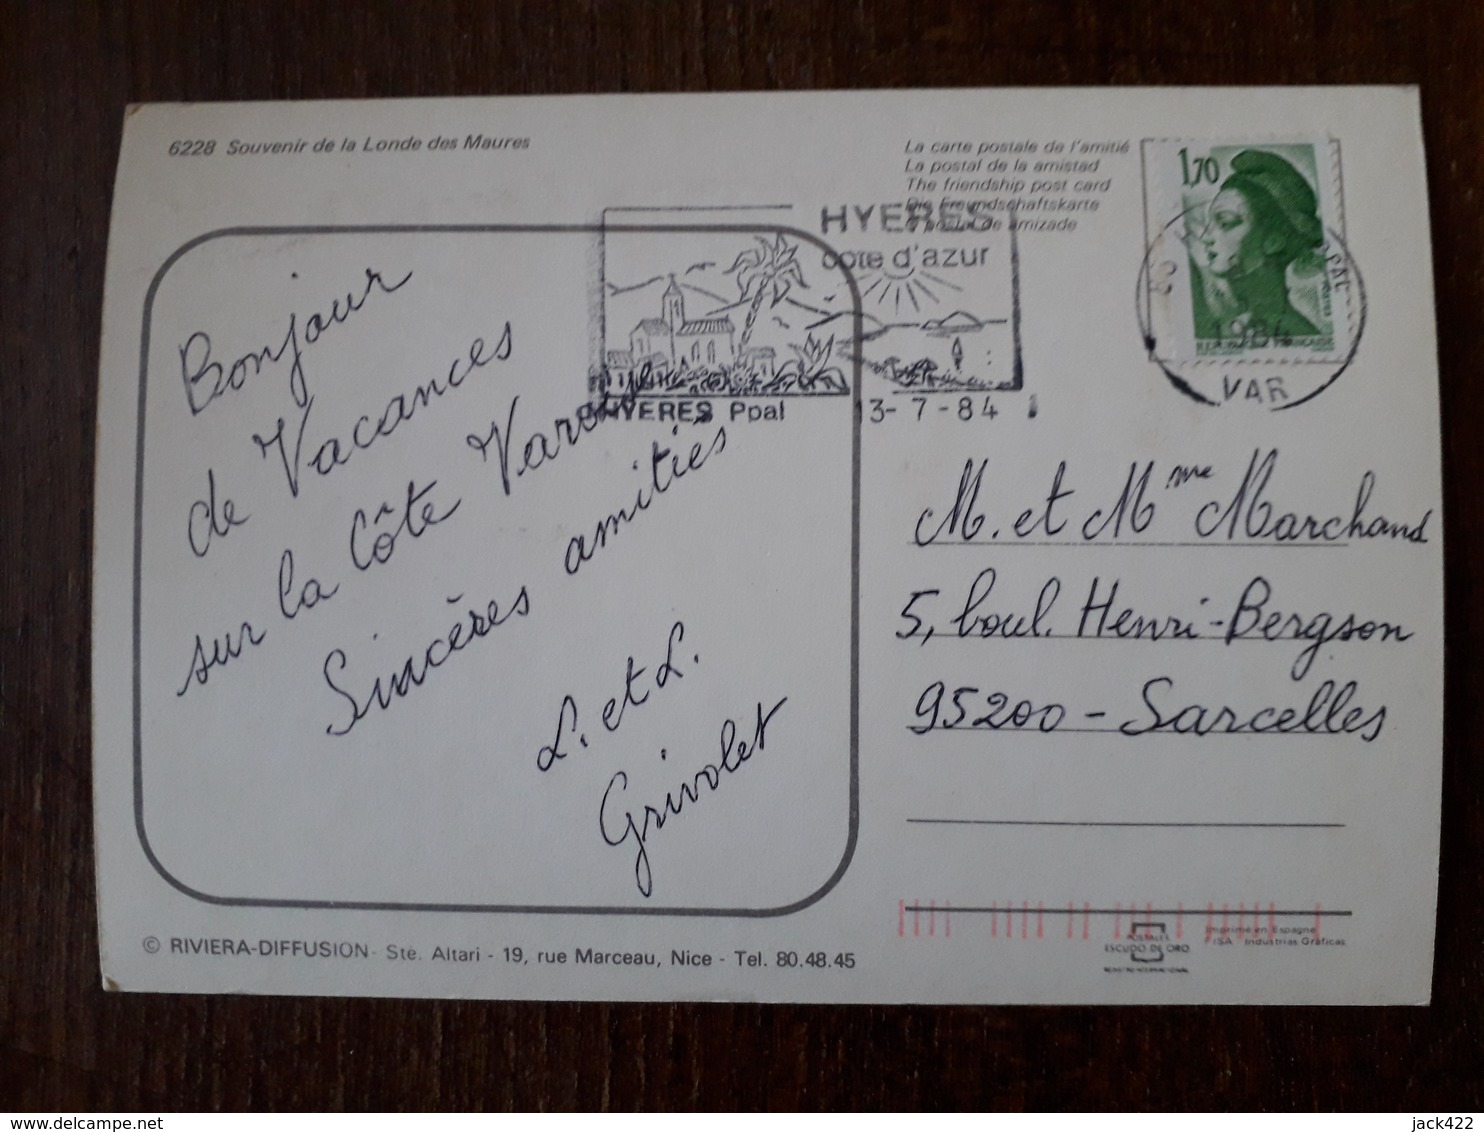 6228 Souvenir de la Londe des Maures
La carte postale de l'amitié
La postal de la amistad
The friendship post card
Die Freundschaftskarte
postal de amizade
1,70
HYERES
cote d'azur
HYERES Ppal
13-7-84
1984
VAR
Bonjour
de Vacances
sur la Côte Varoise
Sincères amitiés
L. et L.
Grivolet
M. et Mme Marchand
5, boul. Henri-Bergson
95200 - Sarcelles
© RIVIERA-DIFFUSION - Sté. Altari - 19, rue Marceau, Nice - Tel. 80.48.45
POSTALES
ESCUDO DE ORO
Imprimé en Espagne
FISA Industrias Gráficas
delcampe.net
jack422